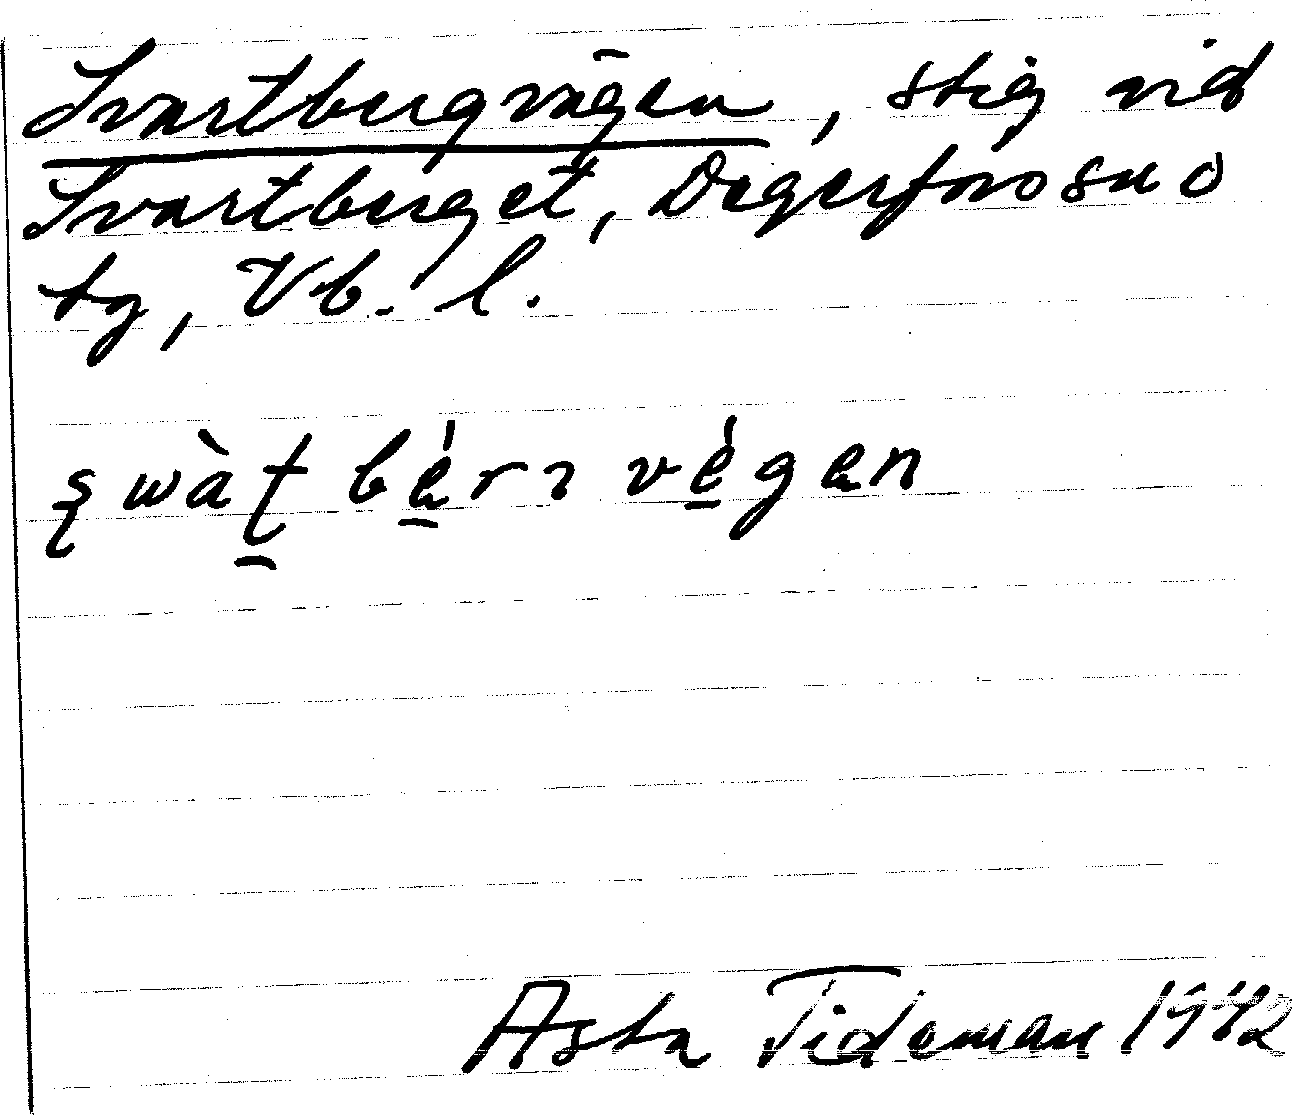 Svartbergvägen, stig vid
Svartberget, Degerfors sn o
tg, Vb. l.
ʂwàʈ bèrɿ vègen
Asta Tideman 1942